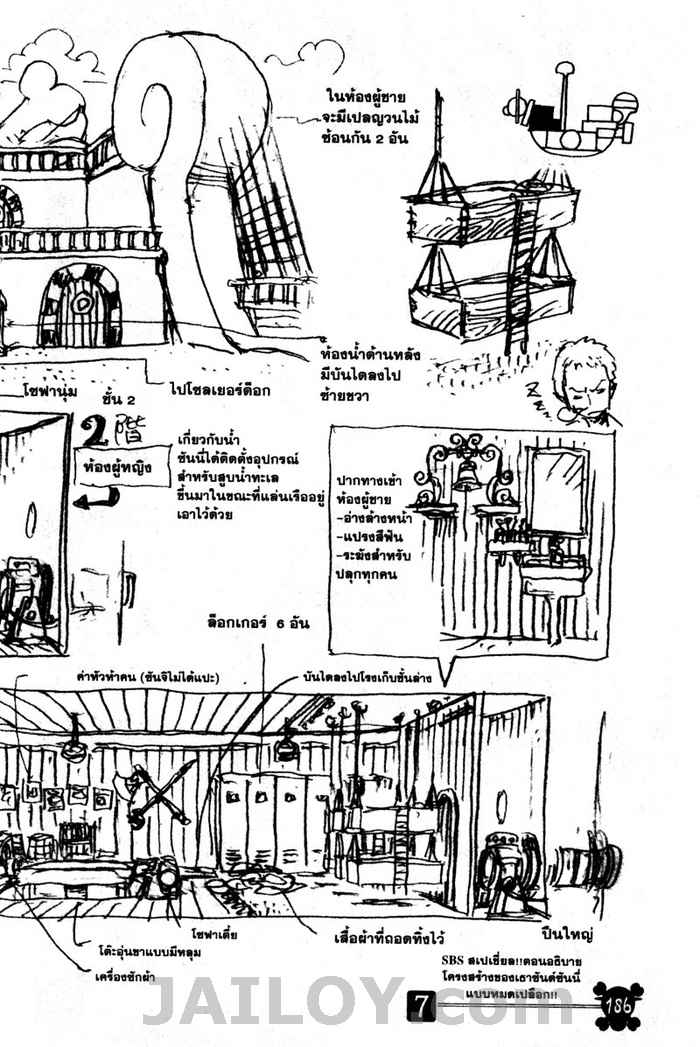 ในห้องผู้ชาย
จะมีเปลญวนไม้
ซ้อนกัน 2 อัน
ห้องน้ำด้านหลัง
มีบันไดลงไป
ซ้ายขวา
Z Z Z
โซฟานุ่ม
ชั้น 2
ไปโซลเยอร์ด็อก
2階
ห้องผู้หญิง
เกี่ยวกับน้ำ
ซันนี่ได้ติดตั้งอุปกรณ์
สำหรับสูบน้ำทะเล
ขึ้นมาในขณะที่แล่นเรืออยู่
เอาไว้ด้วย
ปากทางเข้า
ห้องผู้ชาย
-อ่างล้างหน้า
-แปรงสีฟัน
-ระฆังสำหรับ
ปลุกทุกคน
ล็อกเกอร์ 6 อัน
ค่าหัวห้าคน (ซันจิไม่ได้แปะ)
บันไดลงไปโรงเก็บชั้นล่าง
โซฟาเตี้ย
เสื้อผ้าที่ถอดทิ้งไว้
ปืนใหญ่
โต๊ะอุ่นขาแบบมีหลุม
เครื่องซักผ้า
SBS สเปเชี่ยล!!ตอนอธิบาย
โครงสร้างของเธาซันด์ซันนี่
แบบหมดเปลือก!!
JAILOY.com
7
186